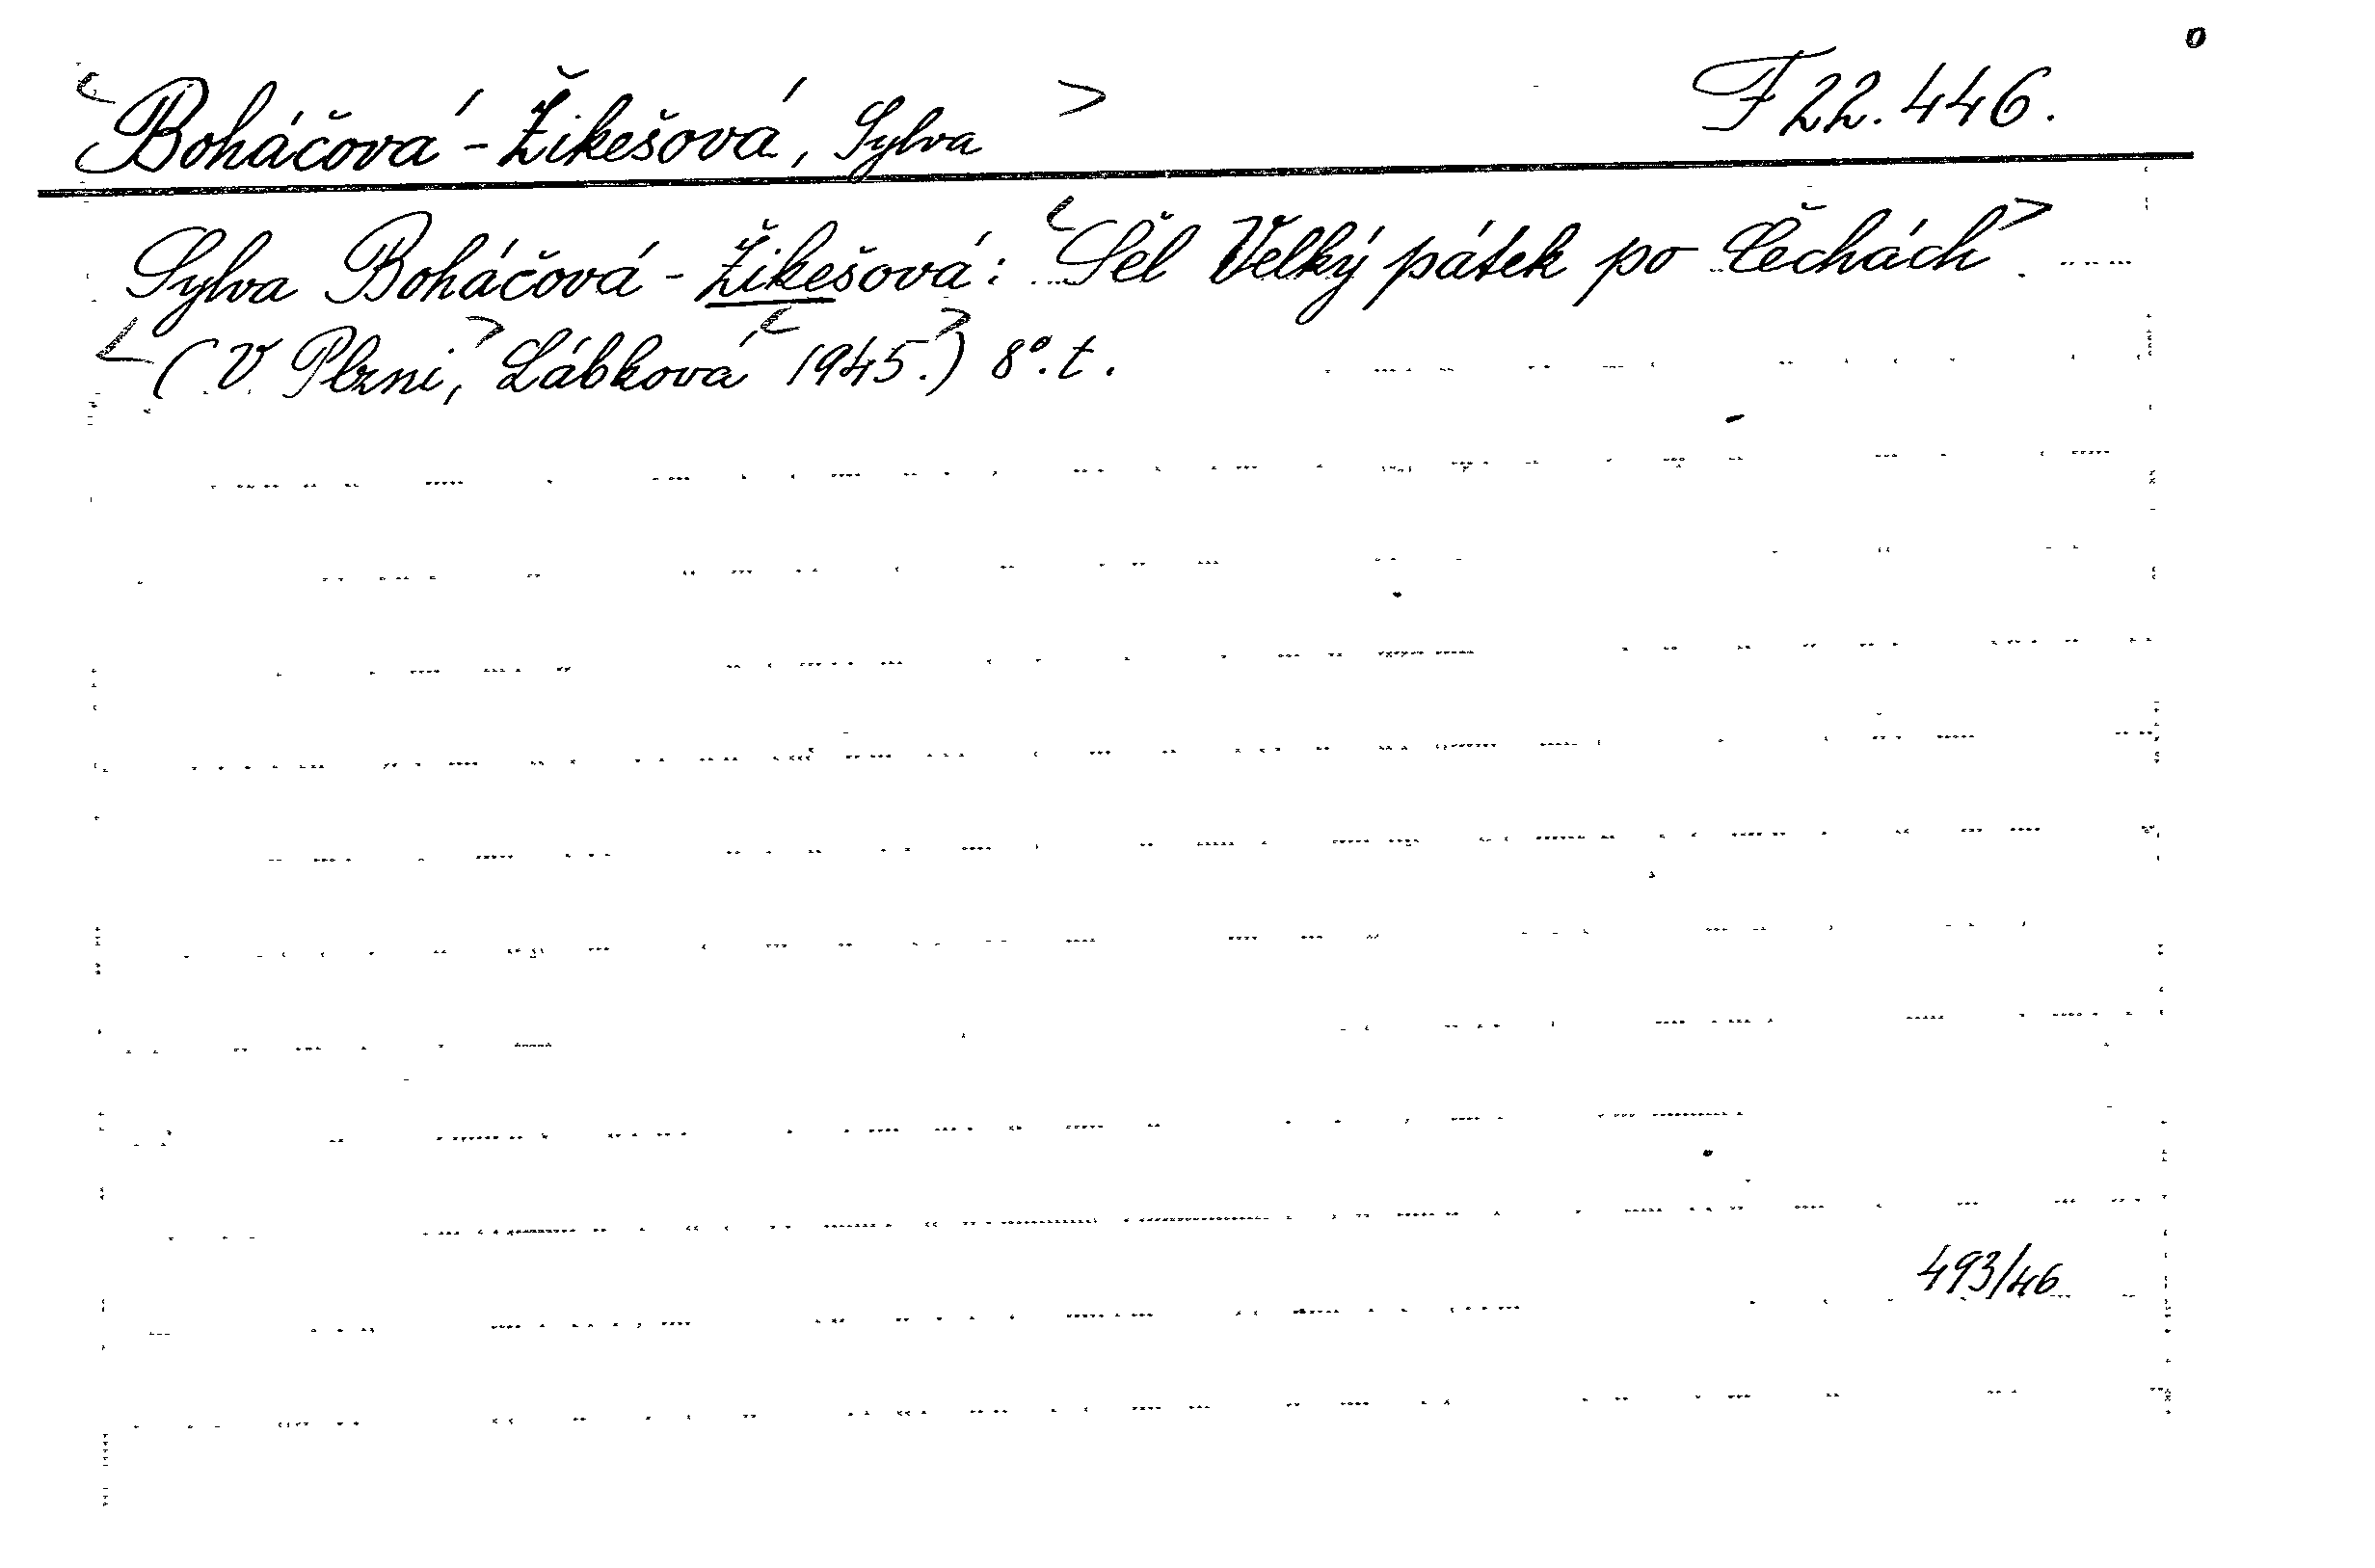 <Boháčová-Žikešová, Sylva> F 22.446.
Sylva Boháčová-Žikešová: <Šel Velký pátek po Čechách>.
<(V Plzni,> Lábková <1945.>) 8°. t.
493/46